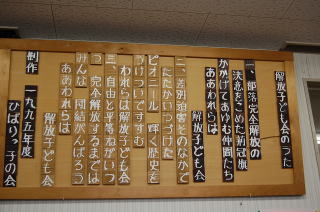 解放子ども会のうた
一、部落完全解放の
決意をこめた荊冠旗
かかげてあゆむ仲間たち
ああわれらは
解放子ども会
二、差別迫害のなかで
たたかいつづけた
ピオニール 輝く歴史を
うけついですすむ
われらは解放子ども会
三、自由と平等かがくつ
つ 完全解放するまでは
みんな 団結がんばろう
ああわれらは
解放子ども会
制作 一九九五年度
ひばりっ子の会